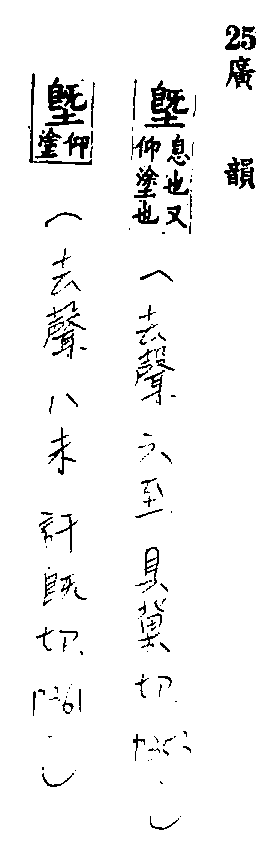 25 廣韻
塈 息也又仰塗也（去聲 六至 具冀切 P352.）
塈 仰塗（去聲 八未 許既切 P361.）